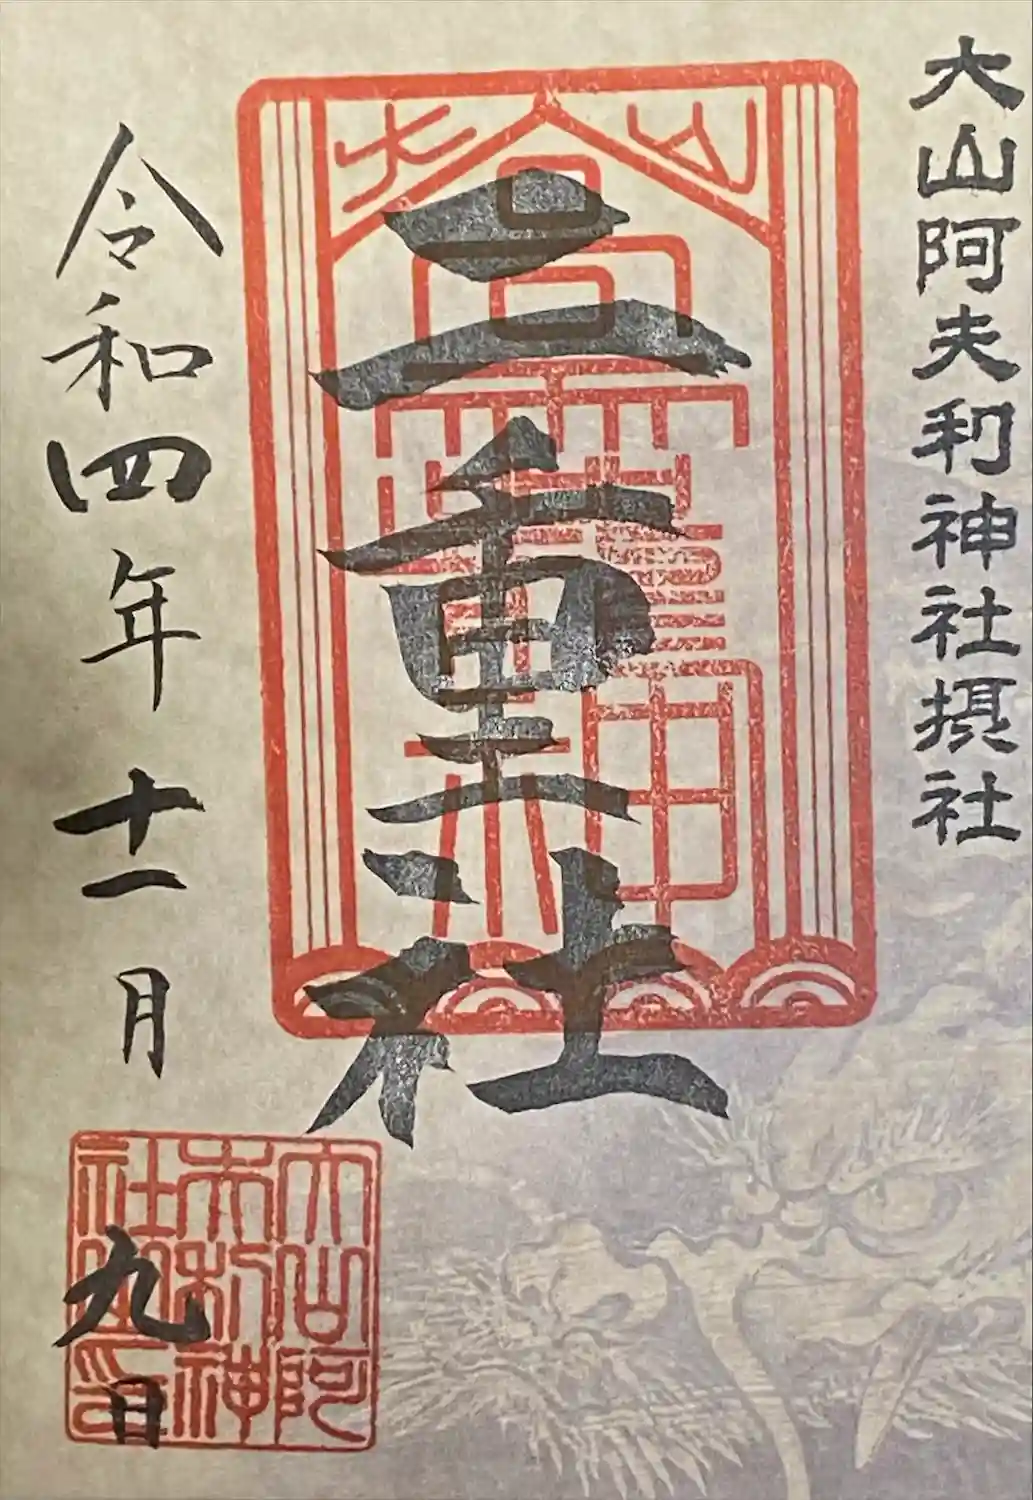 大山阿夫利神社摂社
二重社
令和四年十一月九日
大山
高龗神
大山阿
夫利神
社之印